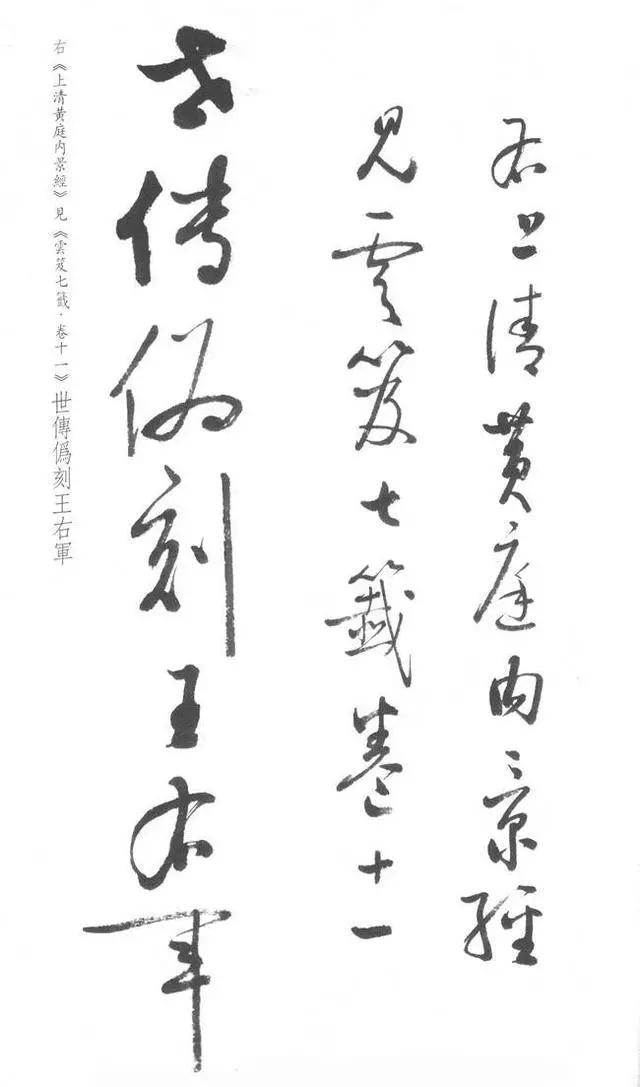 右上清黄庭内景經
見雲笈七籤卷十一
世傳偽刻王右軍
右《上清黃庭內景經》見《雲笈七籤·卷十一》世傳僞刻王右軍